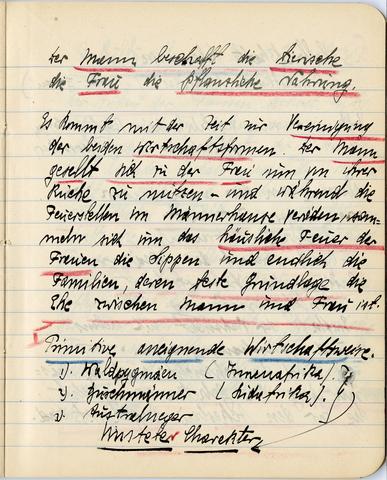 Der Mann beschafft die tierische
die Frau die pflanzliche Nahrung.
Es kommt mit der Zeit zur Vereinigung
der beiden Wirtschaftsformen. Der Mann
gesellt sich zu der Frau um an ihrer
Küche zu nutzen - und während die
Feuerstellen im Männerhause veröden sam-
meln sich um das häusliche Feuer der
Frauen die Sippen und endlich die
Familien, deren feste Grundlage die
Ehe zwischen Mann und Frau ist.
Primitive aneignende Wirtschaftsweise.
1) Waldpygmäen (Innerafrika).
2) Buschmänner (Südafrika).
Australneger
Charakter